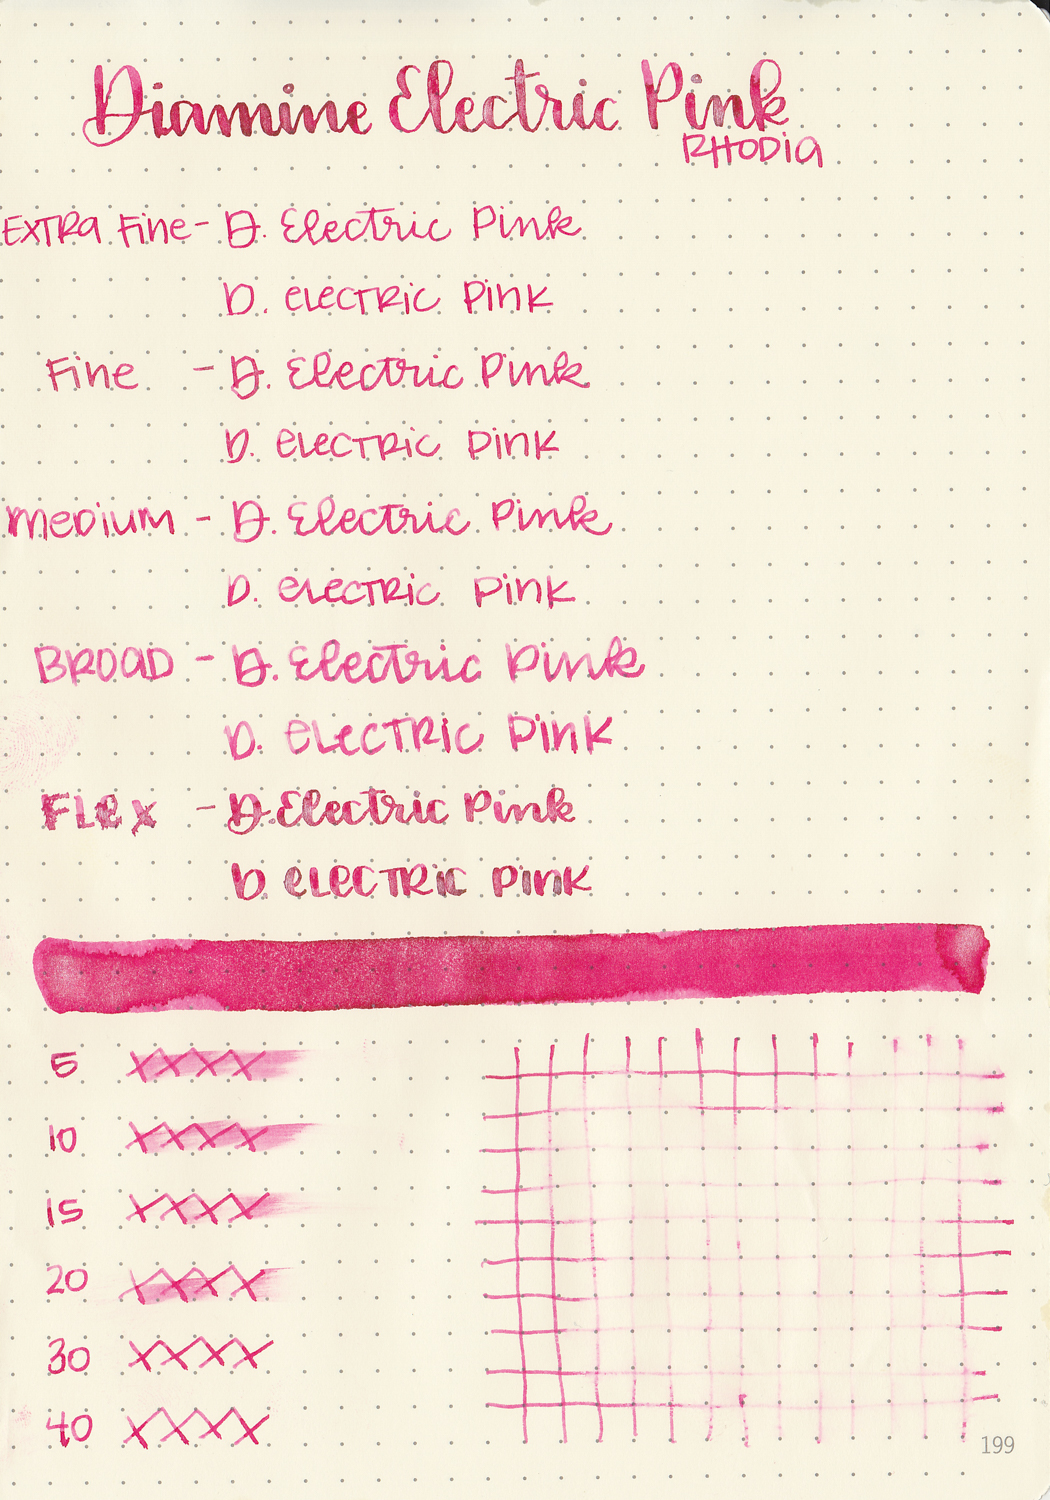 Diamine Electric Pink
RHODIA
EXTRA Fine - D. Electric Pink
D. eLecTRic Pink
Fine - D. Electric Pink
D. eLecTRic Pink
Medium - D. Electric Pink
D. eLecTRic Pink
BROAD - D. Electric Pink
D. eLecTRic Pink
FLex - D. Electric Pink
D. eLecTRic Pink
5 XXXX
10 XXXX
15 XXXX
20 XXXX
30 XXXX
40 XXXX
199